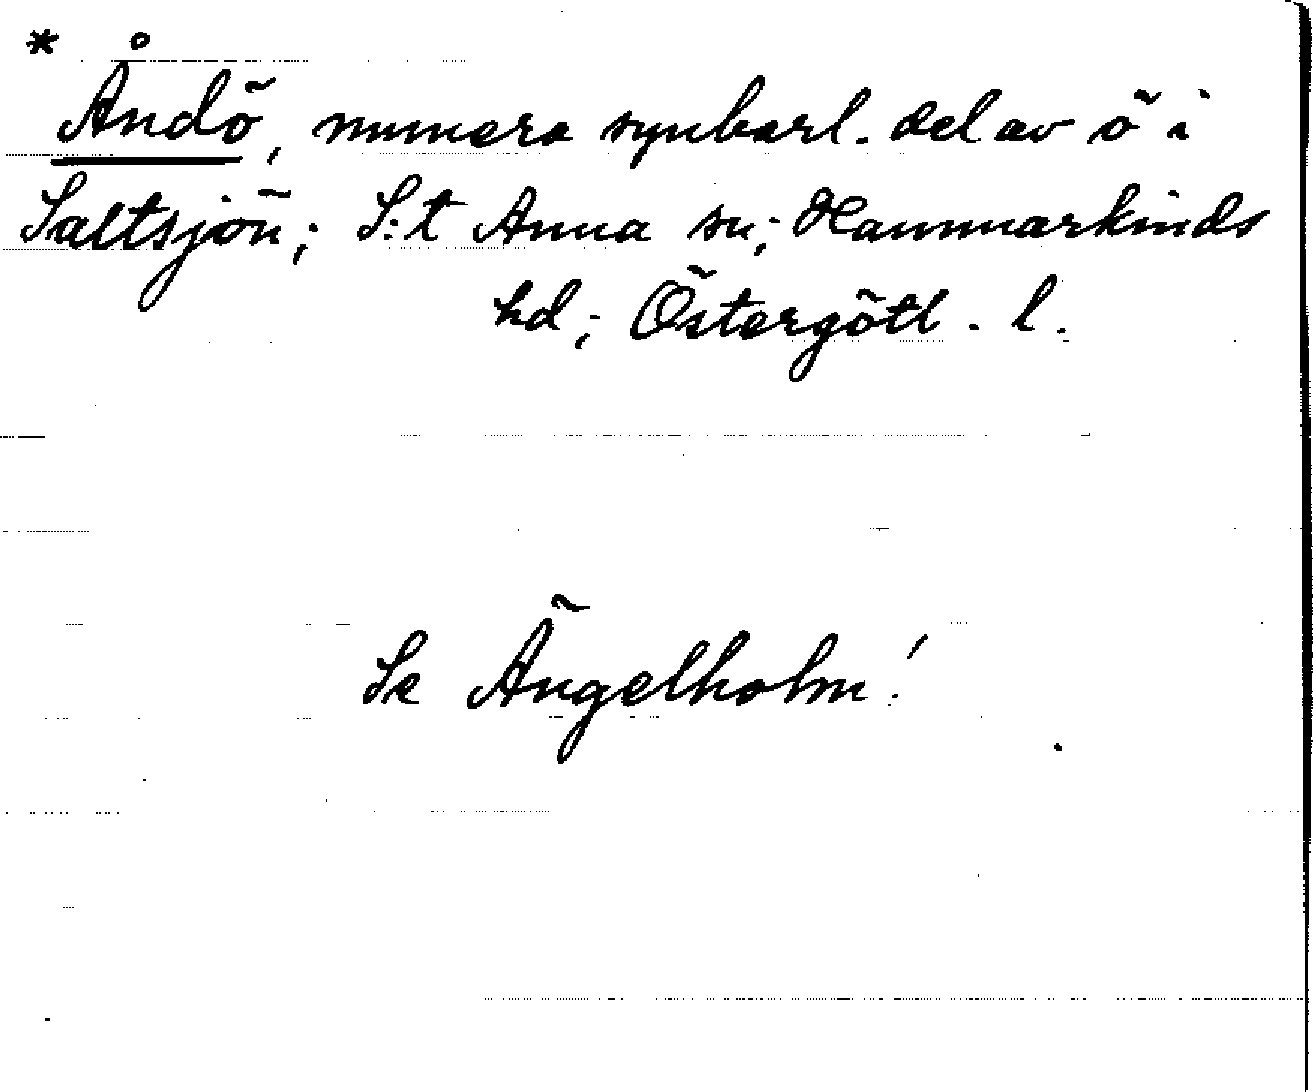 * Åndö, numera synbarl. del av ö i
Saltsjön; S:t Anna sn; Hammarkinds
hd; Östergötl. l.
Se Ängelholm!